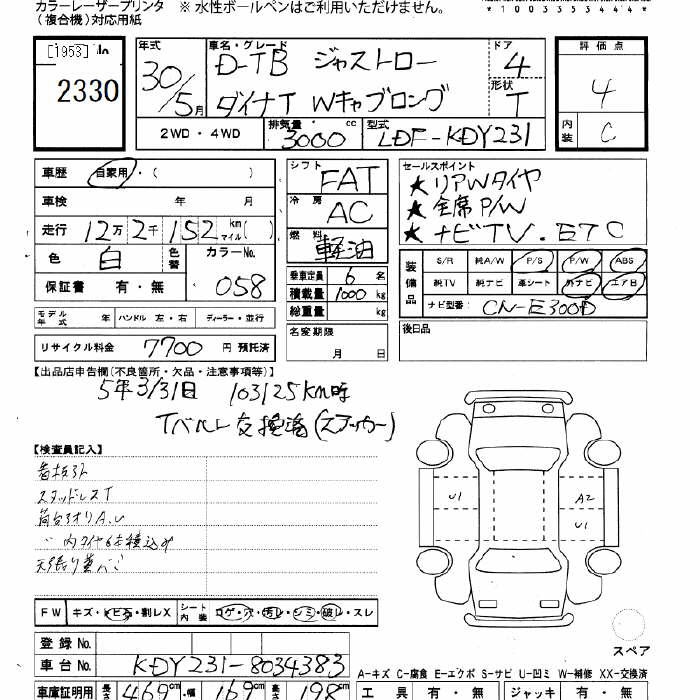 カラーレーザープリンタ ※ 水性ボールペンはご利用いただけません。
(複合機)対応用紙
*1003353444*
[1953] No
2330
年式 30/5月
車名・グレード D-TB ジャストロー
ダイナT Wキャブロング
ドア 4
形状 T
評価点 4
内装 C
2WD ・ 4WD
排気量 3000 cc
型式 LDF-KDY231
車歴 自家用・( )
車検 年 月
走行 12万2千152 km(マイル)( )
色 白 色替 カラーNo. 058
保証書 有・無
モデル年式 年 ハンドル 左・右 ディーラー・並行
リサイクル料金 7700 円 預託済
シフト FAT
冷房 AC
燃料 軽油
乗車定員 6 名
積載量 1000 kg
総重量 kg
名変期限
月 日
セールスポイント
★ リアWタイヤ
★ 全席P/W
★ ナビTV・ETC
装備品 S/R 純A/W P/S P/W ABS
純TV 純ナビ 革シート 外ナビ エアB
ナビ型番 CN-E300D
後日品
【出品店申告欄(不良箇所・欠品・注意事項等)】
5年3/31日 103125km時
Tベルト交換済(ステッカー)
【検査員記入】
看板外
スタッドレスT
荷台サオリA.U
〃 内タイヤ6本積込み
天張り
FW キズ・トビ石・割レX シート内装 コゲ・穴・汚レ・シミ・破レ・スレ
U1 A2
U1
スペア
登録No.
車台No. KDY231-8034383
A-キズ C-腐食 E-エクボ S-サビ U-凹ミ W-補修 XX-交換済
車庫証明用 長さ 469cm 幅 169cm 高さ 198cm
工具 有・無 ジャッキ 有・無